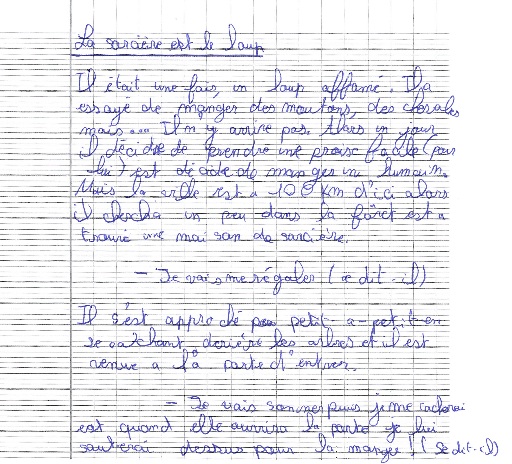 La sorcière est le loup
Il était une fois, un loup affamé. Il a
essayé de manger des moutons, des chevales
mais... Il n'y arrive pas. Alors un jour
il décide de prendre une proie facile (pour
lui) est décide de manger un humain.
Mais la ville est a 100 km d'ici alors
il chercha un peu dans la fôret est a
trouvé une maison de sorcière.
- Je vais me régaler (se dit-il)
Il s'est approché petit-a-petit en
se cachant derière les arbres et il est
venue a la porte d'entrer.
- Je vais sonner puis je me cacherai
est quand elle ouvrira la porte je lui
sauterai dessus pour la manger ! (Se dit-il)